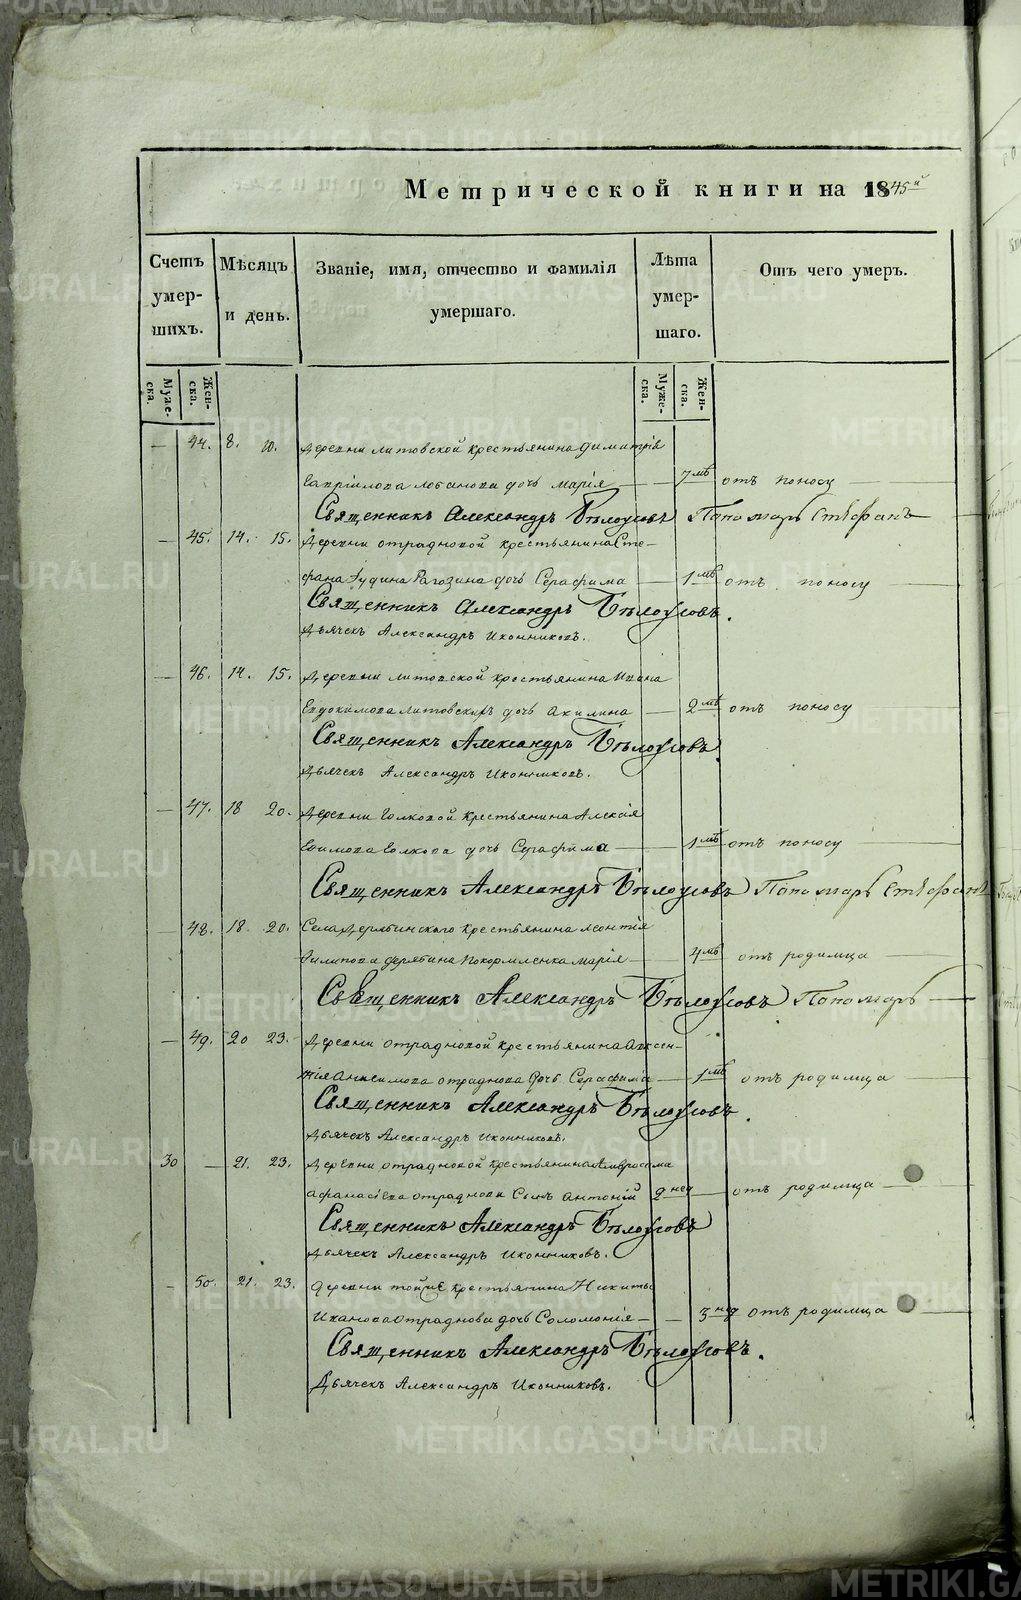 Метрической книги на 1845й
Счетъ умер-шихъ.
Мѣсяцъ и день.
Званіе, имя, отчество и фамилія умершаго.
Лѣта умер-шаго.
Отъ чего умеръ.
Муже-ска.
Жен-ска.
Муже-ска.
Жен-ска.
— 44. 8. 10. Деревни литовской крестьянина Димитрія
Гавріилова лобанова дочь Марія — 7 мѣ отъ поносу
Священникъ Александръ Бѣлоусовъ Пономарь Стефанъ
— 45. 14. 15. Деревни отрадновой крестьянина Сте-
фана Рагозина дочь Серафима — 1 мѣ отъ поносу
Священникъ Александръ Бѣлоусовъ.
Дьячекъ Александръ Иконниковъ.
— 46. 14. 15. Деревни литовской крестьянина Ивана
Евдокимова литовскихъ дочь Акилина — 2 мѣ отъ поносу
Священникъ Александръ Бѣлоусовъ.
Дьячекъ Александръ Иконниковъ.
— 47. 18 20. Деревни Волковой крестьянина Алексія
Ефимова Волкова дочь Серафима — 1 мѣ отъ поносу
Священникъ Александръ Бѣлоусовъ Пономарь Стефанъ
— 48. 18. 20. Села Дерябинского крестьянина Леонтія
Филипова дерябина покормленка Марія — 4 мѣ отъ родимца
Священникъ Александръ Бѣлоусовъ Пономарь
— 49. 20 23. Деревни отрадновой крестьянина Авксен-
тія Анисимова отраднова дочь Серафима — 1 мѣ отъ родимца
Священникъ Александръ Бѣлоусовъ.
Дьячекъ Александръ Иконниковъ.
30 — 21. 23. Деревни отрадновой крестьянина Амвросима
афанасьева отраднова Сынъ антоній 2 нед — отъ родимца
Священникъ Александръ Бѣлоусовъ
Дьячекъ Александръ Иконниковъ.
— 50. 21. 23. Деревни тойже крестьянина Никиты
Иванова отраднова дочь Соломонія — 3 нед отъ родимца
Священникъ Александръ Бѣлоусовъ.
Дьячекъ Александръ Иконниковъ.
METRIKI.GASO-URAL.RU